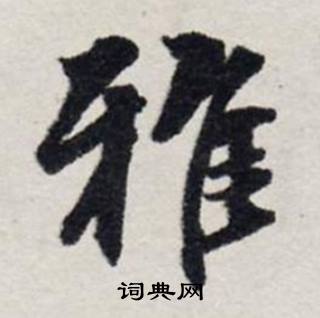 雅
词典网